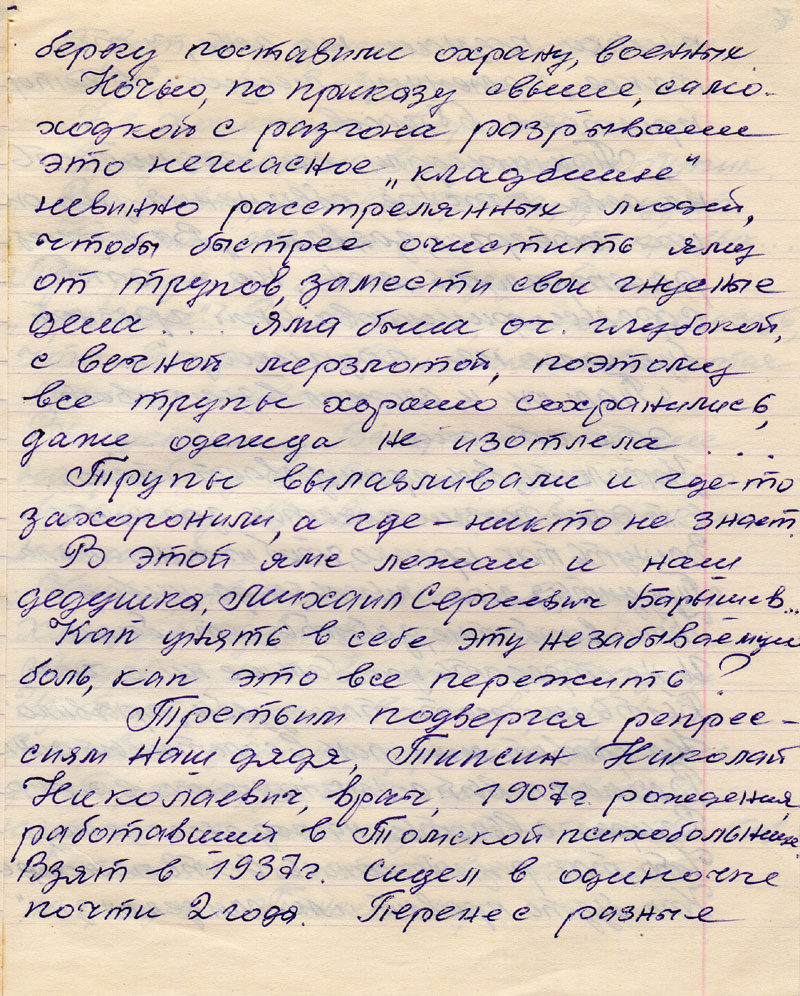 берегу поставили охрану, военных
Ночью, по приказу свыше, само-
ходкой с разгона разрывали
это негласное „кладбище"
невинно расстрелянных людей,
чтобы быстрее очистить яму
от трупов, замести свои гнусные
дела... Яма была оч. глубокой,
с вечной мерзлотой, поэтому
все трупы хорошо сохранились,
даже одежда не изотлела...
Трупы вылавливали и где-то
захоронили, а где – никто не знает.
В этой яме лежал и наш
дедушка, Михаил Сергеевич Барышев...
Как унять в себе эту незабываемую
боль, как это все пережить?
Третьим подвергся репрес-
сиям наш дядя, Типсин Николай
Николаевич, врач, 1907г. рождения,
работавший в Томской психобольнице.
Взят в 1937г. Сидел в одиночке
почти 2 года. Перенес разные